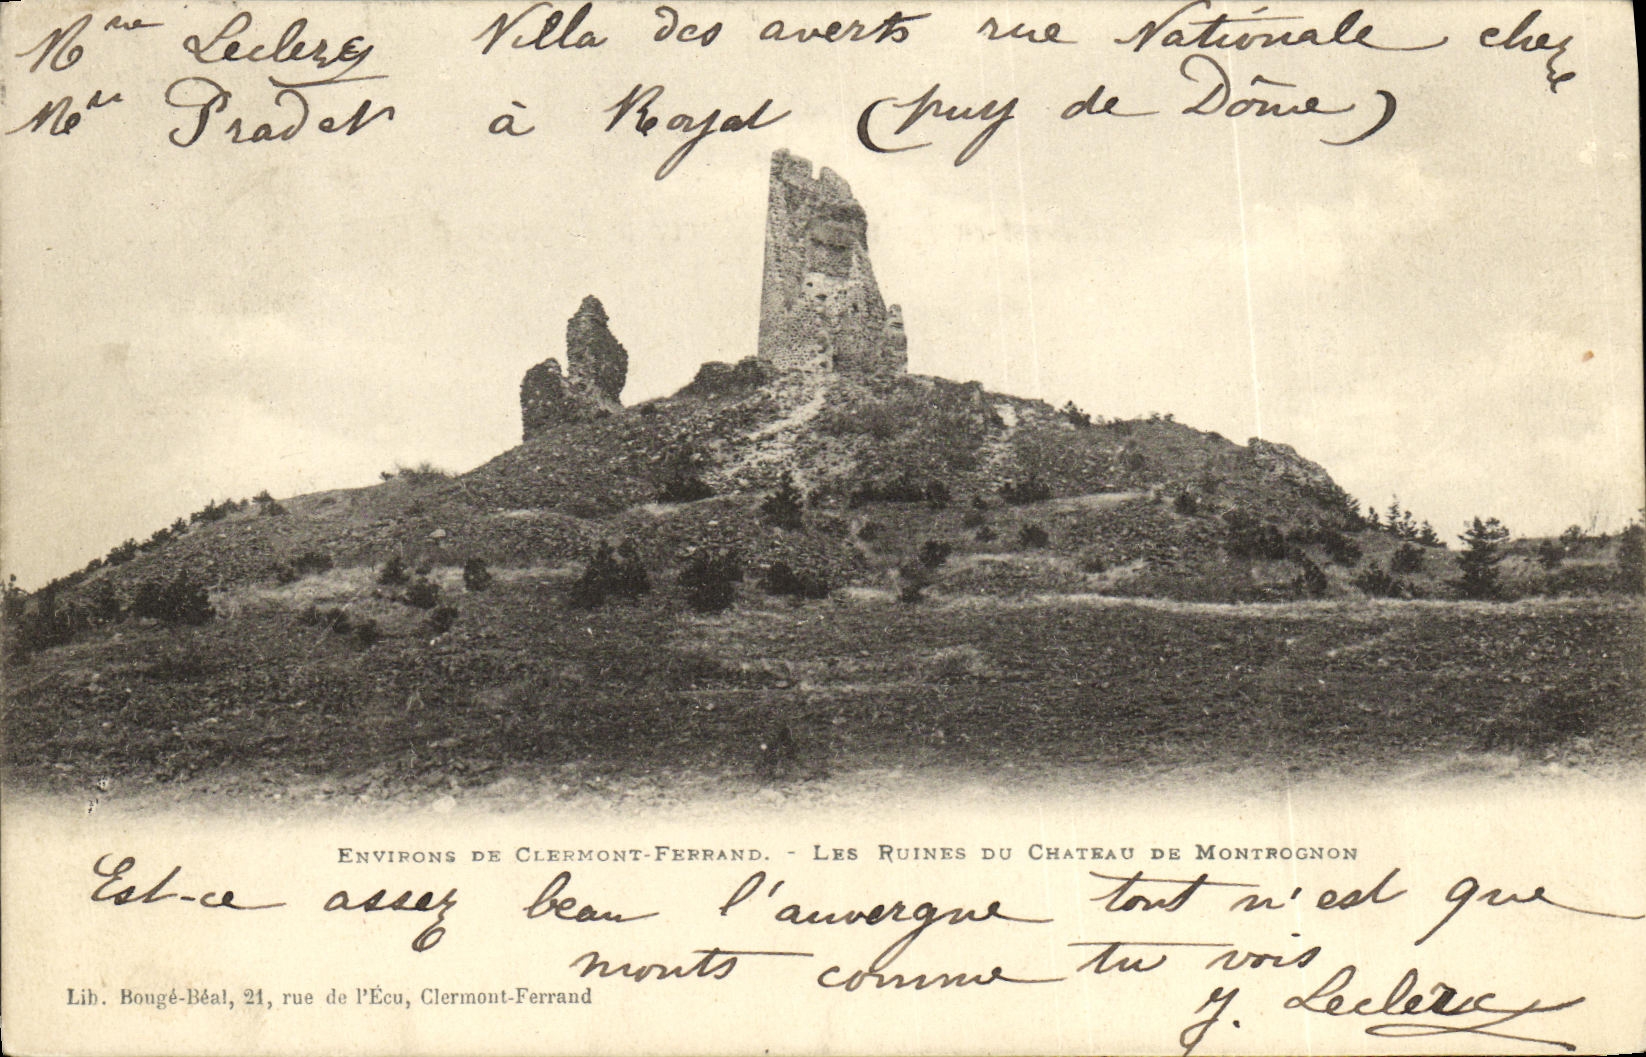 Mme Leclercq Villa des averts rue Nationale chez
Mme Pradet à Royat (puy de Dôme)
ENVIRONS DE CLERMONT-FERRAND. - LES RUINES DU CHATEAU DE MONTROGNON
Est-ce assez beau l'auvergne tout n'est que
monts comme tu vois
Lib. Bougé-Béal, 21, rue de l'Écu, Clermont-Ferrand
Y. Leclercq